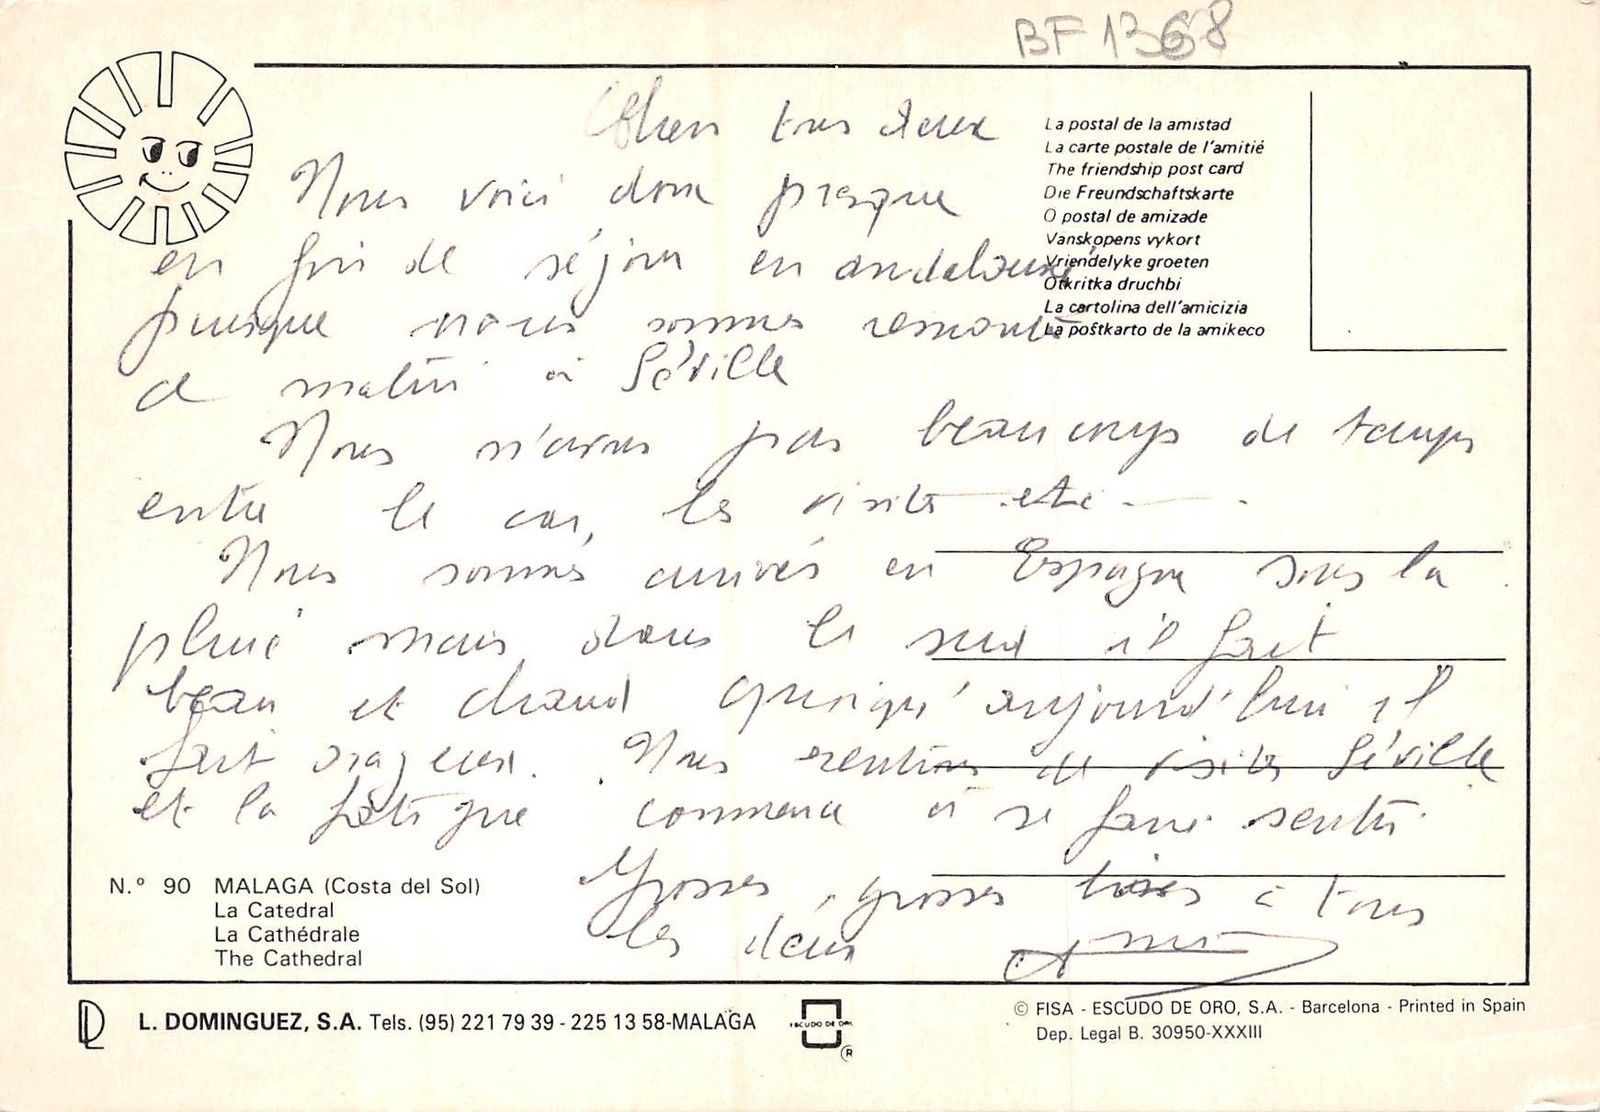 BF 1368
Chers tous deux
Nous voici donc presque
en fin de séjour en andalousie
puisque nous sommes remontés
ce matin à Séville
Nous n'avons pas beaucoup de temps
entre le car, les visites etc - .
Nous sommes arrivés en Espagne sous la
pluie mais dans le sud il fait
beau et chaud quoiqu'aujourd'hui il
fait orageux. Nous rentrons de visiter Séville
et la fatigue commence à se faire sentir.
Grosses, grosses bises à tous
les deux
La postal de la amistad
La carte postale de l'amitié
The friendship post card
Die Freundschaftskarte
O postal de amizade
Vanskopens vykort
Vriendelyke groeten
Otkritka druchbi
La cartolina dell'amicizia
La poŝtkarto de la amikeco
N.º 90 MALAGA (Costa del Sol)
La Catedral
La Cathédrale
The Cathedral
L. DOMINGUEZ, S.A. Tels. (95) 221 79 39 - 225 13 58-MALAGA
ESCUDO DE ORO
®
© FISA - ESCUDO DE ORO, S.A. - Barcelona - Printed in Spain
Dep. Legal B. 30950-XXXIII